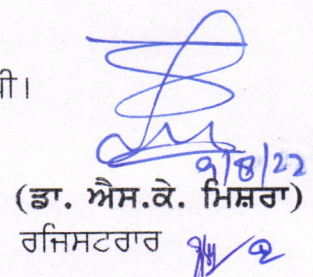 ਸੀ।
9/8/22
(ਡਾ. ਐਸ.ਕੇ. ਮਿਸ਼ਰਾ)
ਰਜਿਸਟਰਾਰ